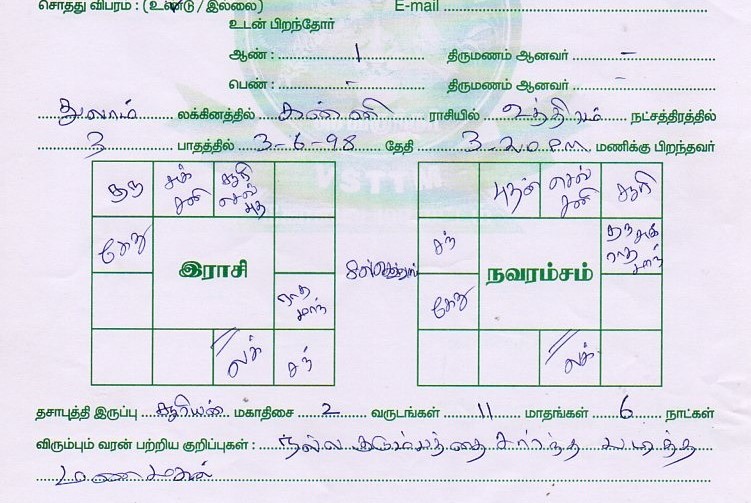 சொத்து விபரம் : (உண்டு / இல்லை) E-mail
உடன் பிறந்தோர்
ஆண் : 1 திருமணம் ஆனவர் -
பெண் : - திருமணம் ஆனவர் -
துலாம் லக்கினத்தில் கன்னி ராசியில் உத்திரம் நட்சத்திரத்தில்
3 பாதத்தில் 3-6-98 தேதி 3-20 P.M மணிக்கு பிறந்தவர்
குரு சுக் சனி சூரி செவ் புத
புதன் செவ் சனி சூரி
கேது
சந்
குரு சுக் ராகு மாந்
இராசி
நவரம்சம்
ராகு மாந்
கேது
லக் சந்
லக்
VSTTM
தசாபுத்தி இருப்பு சூரியன் மகாதிசை 2 வருடங்கள் 11 மாதங்கள் 6 நாட்கள்
விரும்பும் வரன் பற்றிய குறிப்புகள் : நல்ல குடும்பத்தை சார்ந்த படித்த
மணமகன்